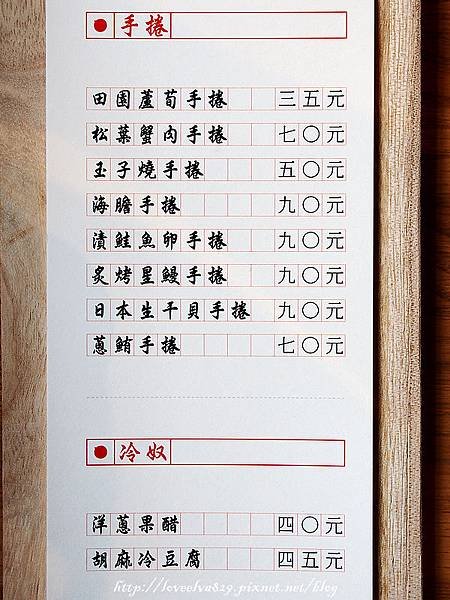 手捲
田園蘆荀手捲 三五元
松葉蟹肉手捲 七〇元
玉子燒手捲 五〇元
海膽手捲 九〇元
漬鮭魚卵手捲 九〇元
炙烤星鰻手捲 九〇元
日本生干貝手捲 九〇元
蔥鮪手捲 七〇元
冷奴
洋蔥果醋 四〇元
胡麻冷豆腐 四五元
http://loveelva829.pixnet.net/blog